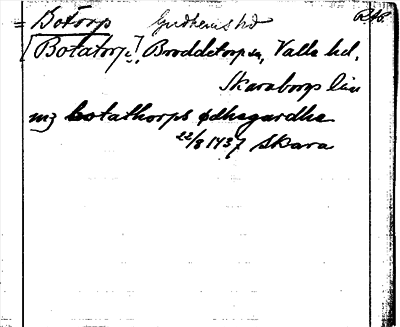 = Botorp Gudhems hd RAp.
[Botatorp], Broddetorps sn, Valle hd,
Skaraborgs län
mz botathorps ødhegardha
22/8 1437 Skara